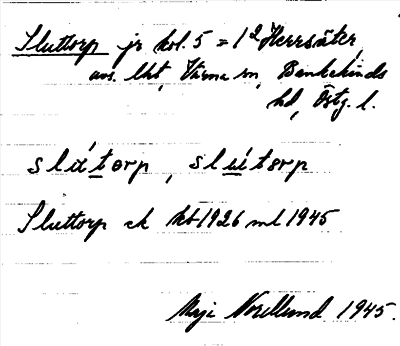 Sluttorp jr kol. 5 = 1² Herrsäter,
avs. lht, Värna sn, Bankekinds
hd, Östg. l.
slútorp, slútorp
Sluttorp ek kb 1926 ml 1945
Norellund 1945.